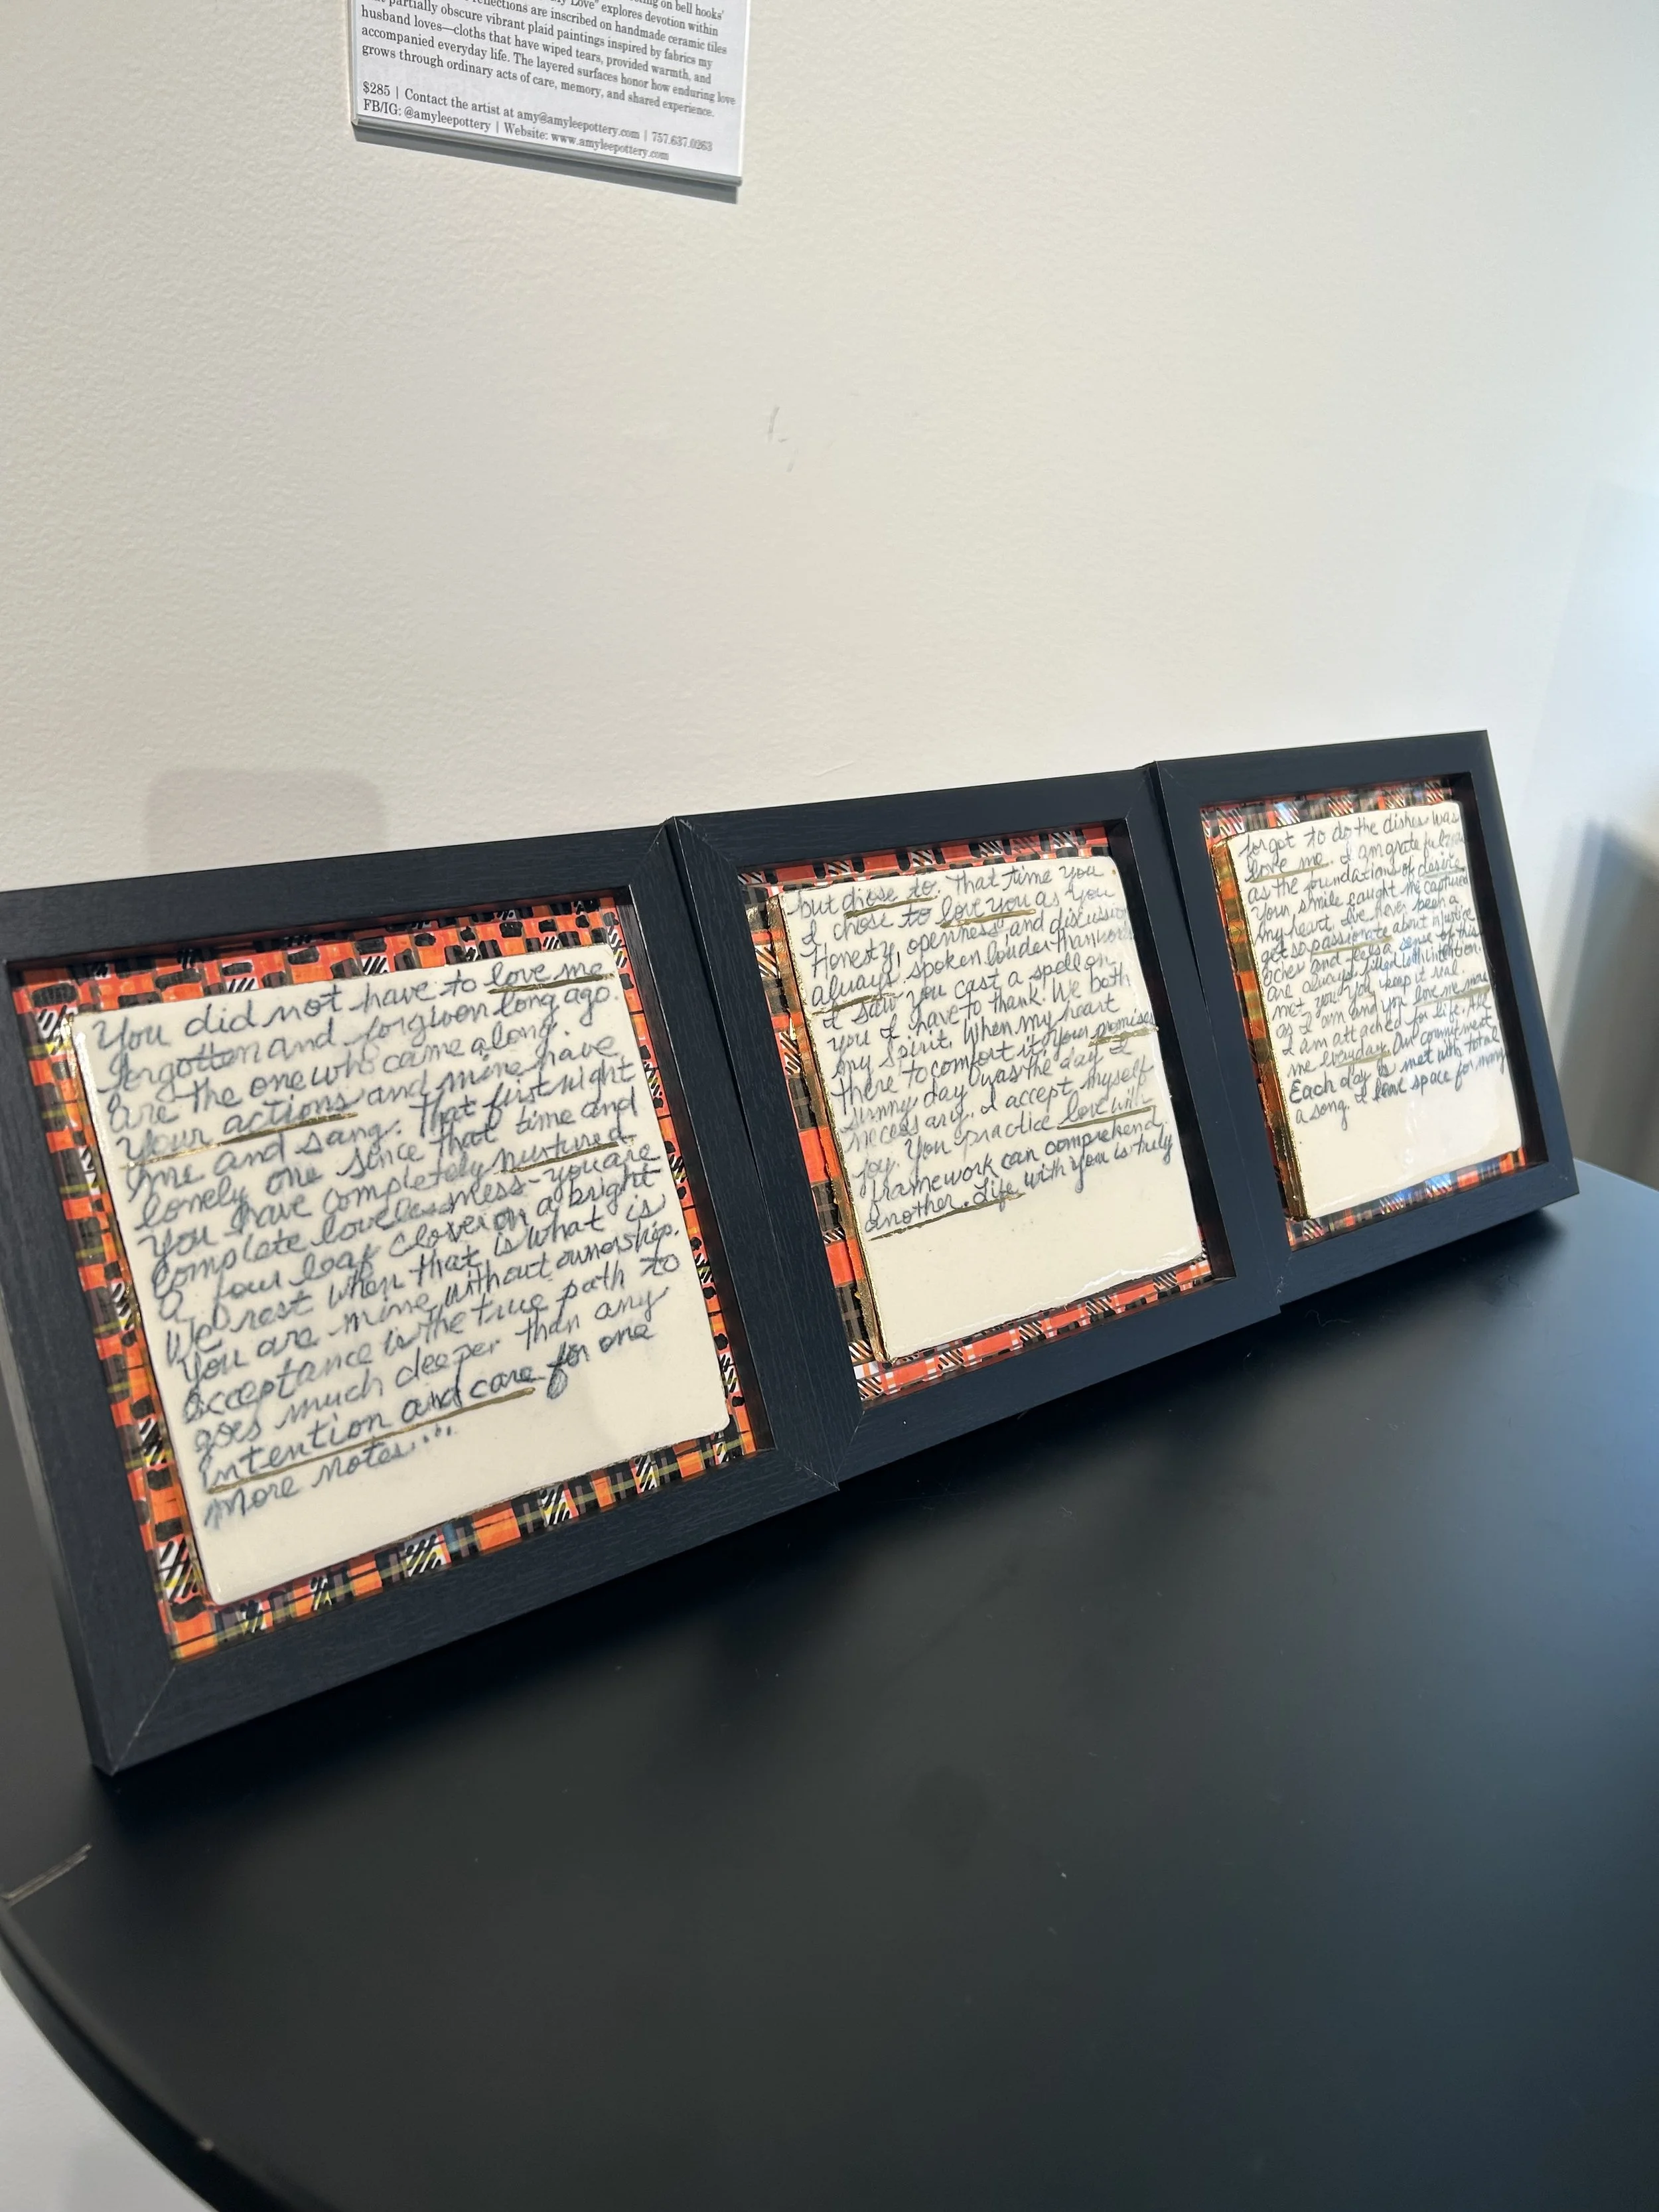 on bell hooks'
Love" explores devotion within
reflections are inscribed on handmade ceramic tiles
partially obscure vibrant plaid paintings inspired by fabrics my
husband loves—cloths that have wiped tears, provided warmth, and
accompanied everyday life. The layered surfaces honor how enduring love
grows through ordinary acts of care, memory, and shared experience.
$285 | Contact the artist at amy@amyleepottery.com | 757.637.0263
FB/IG: @amyleepottery | Website: www.amyleepottery.com
You did not have to love me
forgotten and forgiven long ago.
are the one who came along.
Your actions and mine have
me and sang. That first night
lonely one since that time and
You have completely nurtured
complete lovelessness - you are
a four leaf clover on a bright
We rest when that is what is
You are mine without ownership.
acceptance is the true path to
goes much deeper than any
intention and care for one
more notes...
but chose to. That time you
I chose to love you as you
Honesty, openness, and discussion
always spoken louder than words
I saw you cast a spell on
you I have to thank. We both
my spirit. When my heart
there to comfort it. Your promises
sunny day was the day I
necessary. I accept myself
joy. You practice love with
framework can comprehend.
another. Life with you is truly
forgot to do the dishes was
love me. I am grateful for
as the foundations of desire
Your smile caught me captured
my heart. I've never been a
get so passionate about injustice
aches and feels a sense of this
are always filled with intention.
met you. You keep it real.
as I am and you love me more
I am attached for life. All
me everyday. Our commitment
Each day is met with total
a song. I leave space for many